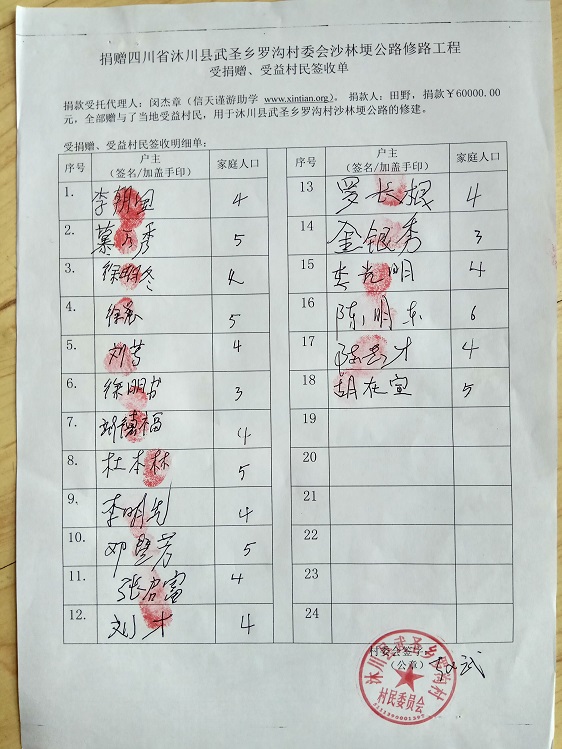 捐赠四川省沐川县武圣乡罗沟村委会沙林埂公路修路工程
受捐赠、受益村民签收单
捐款受托代理人：闵杰章（信天谨游助学 www.xintian.org）。捐款人：田野，捐款￥60000.00
元，全部赠与了当地受益村民，用于沐川县武圣乡罗沟村沙林埂公路的修建。
受捐赠、受益村民签收明细单：
序号 户主（签名/加盖手印） 家庭人口 序号 户主（签名/加盖手印） 家庭人口
1. 李 4 13 罗长根 4
2. 秀 5 14 金银秀 3
3. 徐明冬 4 15 光明 4
4. 徐 5 16 陈明东 6
5. 刘 4 17 陈 才 4
6. 徐明 3 18 胡在宣 5
7. 福 4 19
8. 杜本林 5 20
9. 李明 4 21
10. 邓 芳 5 22
11. 张 富 4 23
12. 刘才 4 24
村委会签字：
（公章）
沐川县武圣乡 村
村民委员会